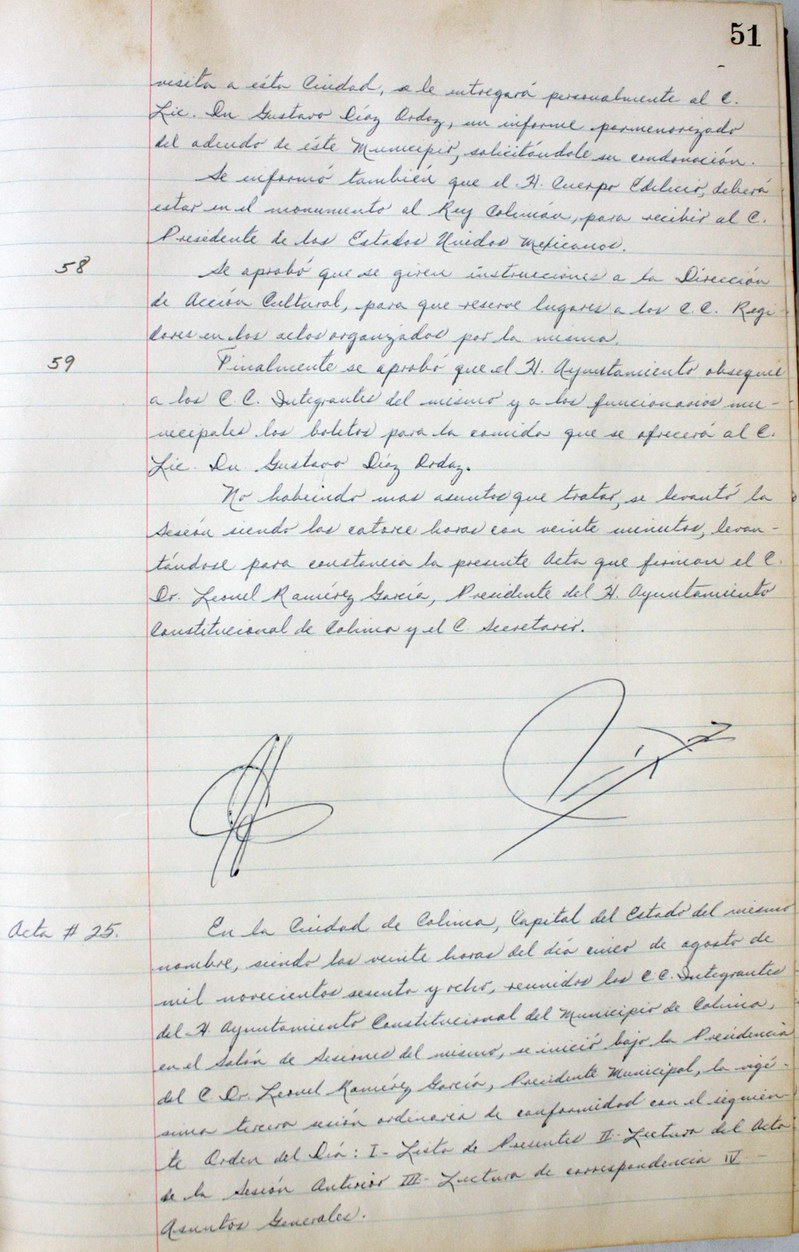 51
visita a ésta Ciudad, se le entregará personalmente al C.
Lic. Dn Gustavo Díaz Ordaz, un informe pormenorizado
del adeudo de éste Municipio, solicitándole su condonación.
Se informó también que el H. Cuerpo Edilicio, deberá
estar en el monumento al Rey Colimán, para recibir al C.
Presidente de los Estados Unidos Mexicanos.
58 Se aprobó que se giren instrucciones a la Dirección
de Acción Cultural, para que reserve lugares a los C.C. Regi-
dores en los actos organizados por la misma.
59 Finalmente se aprobó que el H. Ayuntamiento obsequie
a los C.C. Integrantes del mismo y a los funcionarios mu-
nicipales los boletos para la comida que se ofrecerá al C.
Lic. Dn Gustavo Díaz Ordaz.
No habiendo mas asuntos que tratar, se levantó la
Sesión siendo las catorce horas con veinte minutos, levan-
tándose para constancia la presente Acta que firman el C.
Dr. Leonel Ramírez García, Presidente del H. Ayuntamiento
Constitucional de Colima y el C. Secretario.
Acta # 25. En la Ciudad de Colima, Capital del Estado del mismo
nombre, siendo las veinte horas del día cinco de agosto de
mil novecientos sesenta y ocho, reunidos los C.C. Integrantes
del H Ayuntamiento Constitucional del Municipio de Colima,
en el Salón de Sesiones del mismo, se inició bajo la Presidencia
del C. Dr. Leonel Ramírez García, Presidente Municipal, la vigé-
sima tercera sesión ordinaria de conformidad con el siguien-
te Orden del Día: I- Lista de Presentes II- Lectura del Acta
de la Sesión Anterior III- Lectura de correspondencia IV-
Asuntos Generales.